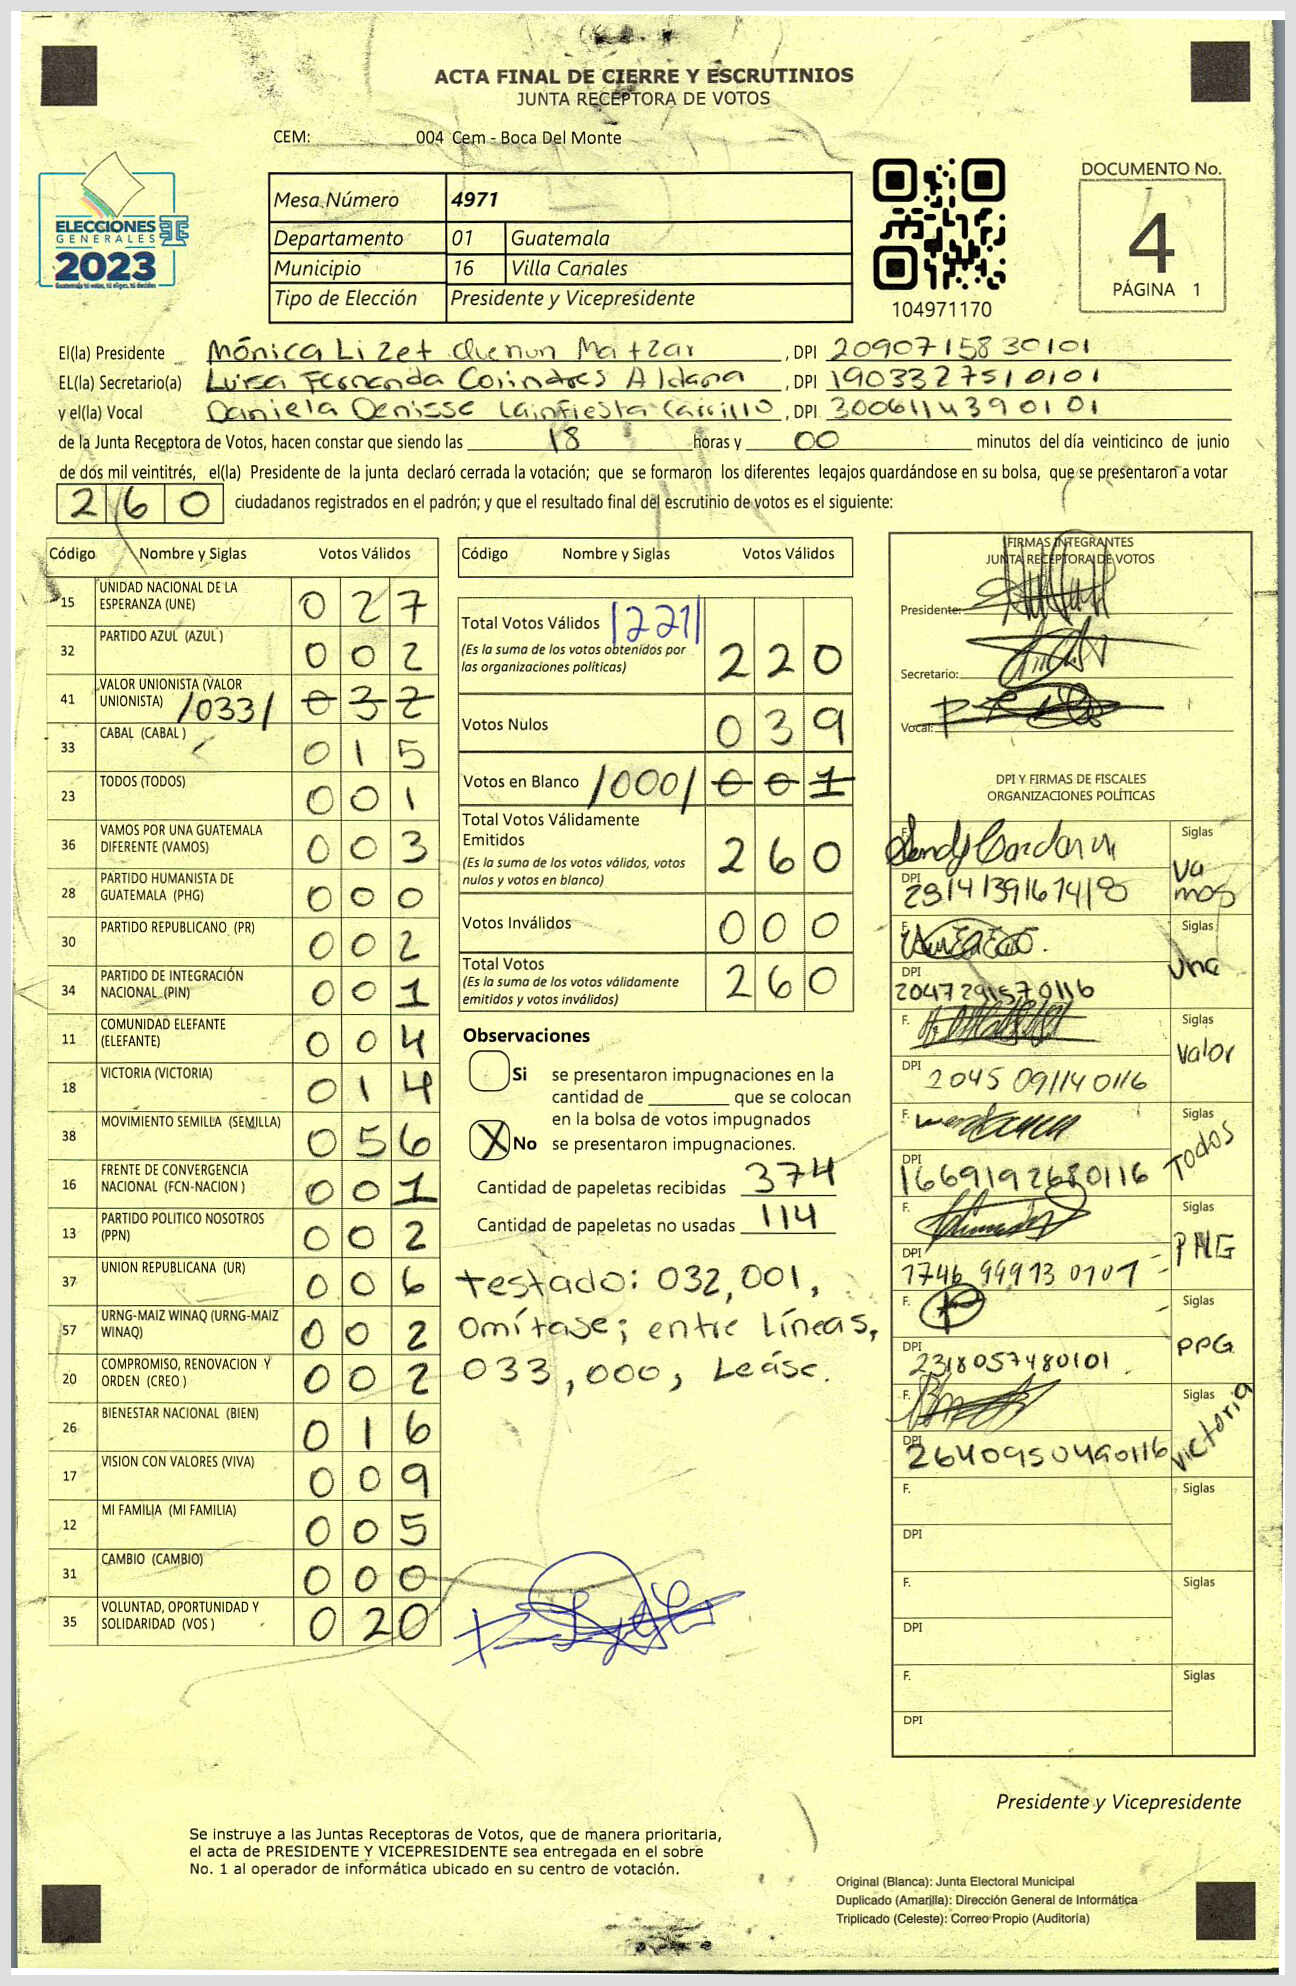 ACTA FINAL DE CIERRE Y ESCRUTINIOS
JUNTA RECEPTORA DE VOTOS
CEM: 004 Cem - Boca Del Monte
ELECCIONES
GENERALES
2023
Guatemala tú votas, tú eliges, tú decides
Mesa Número 4971
Departamento 01 Guatemala
Municipio 16 Villa Canales
Tipo de Elección Presidente y Vicepresidente
104971170
DOCUMENTO No.
4
PÁGINA 1
El(la) Presidente Mónica Lizet Quenun Matzar, DPI 2090715830101
EL(la) Secretario(a) Luisa Fernanda Colindres Aldana, DPI 1903327510101
y el(la) Vocal Daniela Denisse Lainfiesta Carrillo, DPI 3006114390101
de la Junta Receptora de Votos, hacen constar que siendo las 18 horas y 00 minutos del día veinticinco de junio
de dos mil veintitrés, el(la) Presidente de la junta declaró cerrada la votación; que se formaron los diferentes legajos guardándose en su bolsa, que se presentaron a votar
260 ciudadanos registrados en el padrón; y que el resultado final del escrutinio de votos es el siguiente:
Código Nombre y Siglas Votos Válidos
15 UNIDAD NACIONAL DE LA ESPERANZA (UNE) 027
32 PARTIDO AZUL (AZUL ) 002
41 VALOR UNIONISTA (VALOR UNIONISTA) /033/ 032
33 CABAL (CABAL ) 015
23 TODOS (TODOS) 001
36 VAMOS POR UNA GUATEMALA DIFERENTE (VAMOS) 003
28 PARTIDO HUMANISTA DE GUATEMALA (PHG) 000
30 PARTIDO REPUBLICANO (PR) 002
34 PARTIDO DE INTEGRACIÓN NACIONAL (PIN) 001
11 COMUNIDAD ELEFANTE (ELEFANTE) 004
18 VICTORIA (VICTORIA) 014
38 MOVIMIENTO SEMILLA (SEMILLA) 056
16 FRENTE DE CONVERGENCIA NACIONAL (FCN-NACION ) 001
13 PARTIDO POLITICO NOSOTROS (PPN) 002
37 UNION REPUBLICANA (UR) 006
57 URNG-MAIZ WINAQ (URNG-MAIZ WINAQ) 002
20 COMPROMISO, RENOVACION Y ORDEN (CREO ) 002
26 BIENESTAR NACIONAL (BIEN) 016
17 VISION CON VALORES (VIVA) 009
12 MI FAMILIA (MI FAMILIA) 005
31 CAMBIO (CAMBIO) 000
35 VOLUNTAD, OPORTUNIDAD Y SOLIDARIDAD (VOS ) 020
Código Nombre y Siglas Votos Válidos
Total Votos Válidos |221| 220
(Es la suma de los votos obtenidos por
las organizaciones políticas)
Votos Nulos 039
Votos en Blanco /000/ 001
Total Votos Válidamente
Emitidos 260
(Es la suma de los votos válidos, votos
nulos y votos en blanco)
Votos Inválidos 000
Total Votos 260
(Es la suma de los votos válidamente
emitidos y votos inválidos)
Observaciones
Si se presentaron impugnaciones en la
cantidad de ________ que se colocan
en la bolsa de votos impugnados
X No se presentaron impugnaciones.
Cantidad de papeletas recibidas 374
Cantidad de papeletas no usadas 114
testado: 032, 001,
Omítase; entre líneas,
033, 000, Leáse.
FIRMAS INTEGRANTES
JUNTA RECEPTORA DE VOTOS
Presidente:
Secretario:
Vocal:
DPI Y FIRMAS DE FISCALES
ORGANIZACIONES POLÍTICAS
F. Siglas
DPI Vamos
F. Siglas
DPI 2047291570116 Une
F. Siglas
DPI 2045 09114 0116 Valor
F. Siglas
DPI 1669192680116 Todos
F. Siglas
DPI 1746 99913 0101 PHG
F. Siglas
DPI 2318057480101 PPG
F. Siglas
DPI 2640950490116 Victoria
F. Siglas
DPI
F. Siglas
DPI
F. Siglas
DPI
Presidente y Vicepresidente
Se instruye a las Juntas Receptoras de Votos, que de manera prioritaria,
el acta de PRESIDENTE Y VICEPRESIDENTE sea entregada en el sobre
No. 1 al operador de informática ubicado en su centro de votación.
Original (Blanca): Junta Electoral Municipal
Duplicado (Amarilla): Dirección General de Informática
Triplicado (Celeste): Correo Propio (Auditoría)